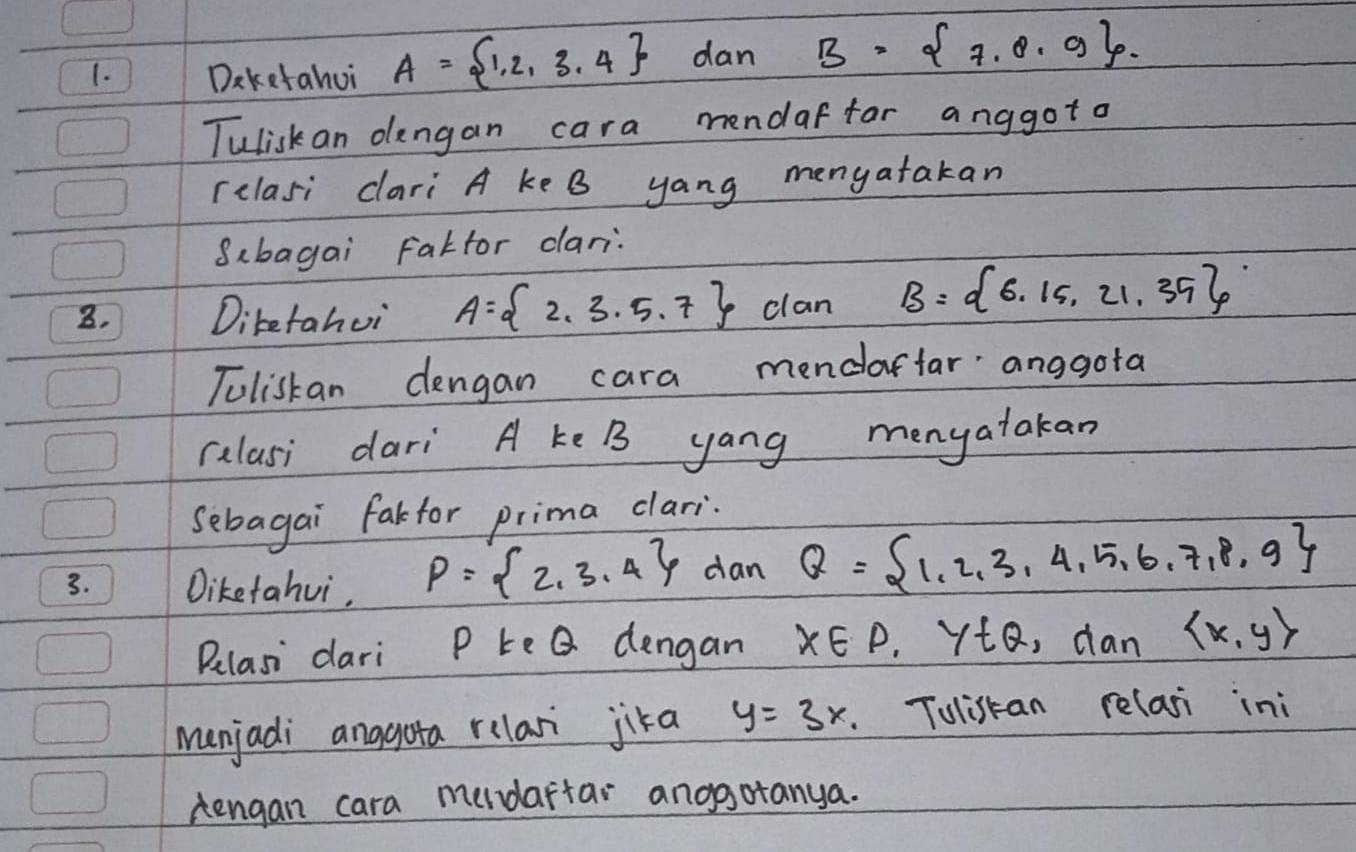 1. Deketahui A = {1,2, 3. 4} dan B = {7. 8. 9}.
Tuliskan dengan cara mendaftar anggota
relasi dari A ke B yang menyatakan
Sebagai Faktor dari.
2. Diketahui A={2. 3. 5. 7} dan B = {6. 15, 21. 35}.
Tuliskan dengan cara mendaftar anggota
relasi dari A ke B yang menyatakan
sebagai faktor prima dari.
3. Diketahui, P = {2. 3. 4} dan Q = {1. 2. 3, 4, 5, 6. 7, 8, 9}
Relasi dari P ke Q dengan x∈P, Y∈Q, dan (x, y)
menjadi anggota relasi jika y = 3x. Tuliskan relasi ini
dengan cara mendaftar anggotanya.